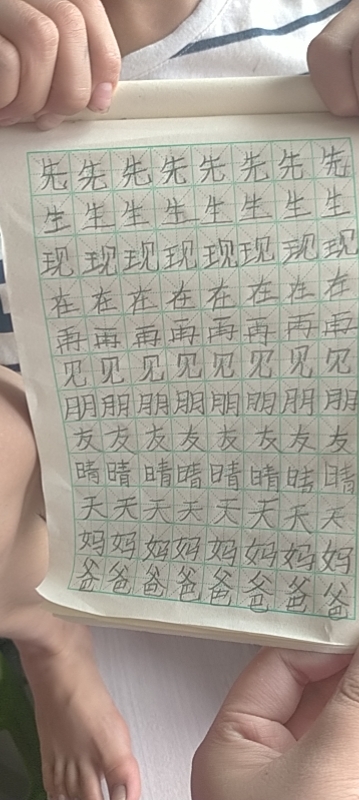 先先先先先先先先
生生生生生生生生
现现现现现现现现
在在在在在在在在
再再再再再再再再
见见见见见见见见
朋朋朋朋朋朋朋朋
友友友友友友友友
晴晴晴晴晴晴晴晴
天天天天天天天天
妈妈妈妈妈妈妈妈
爸爸爸爸爸爸爸爸